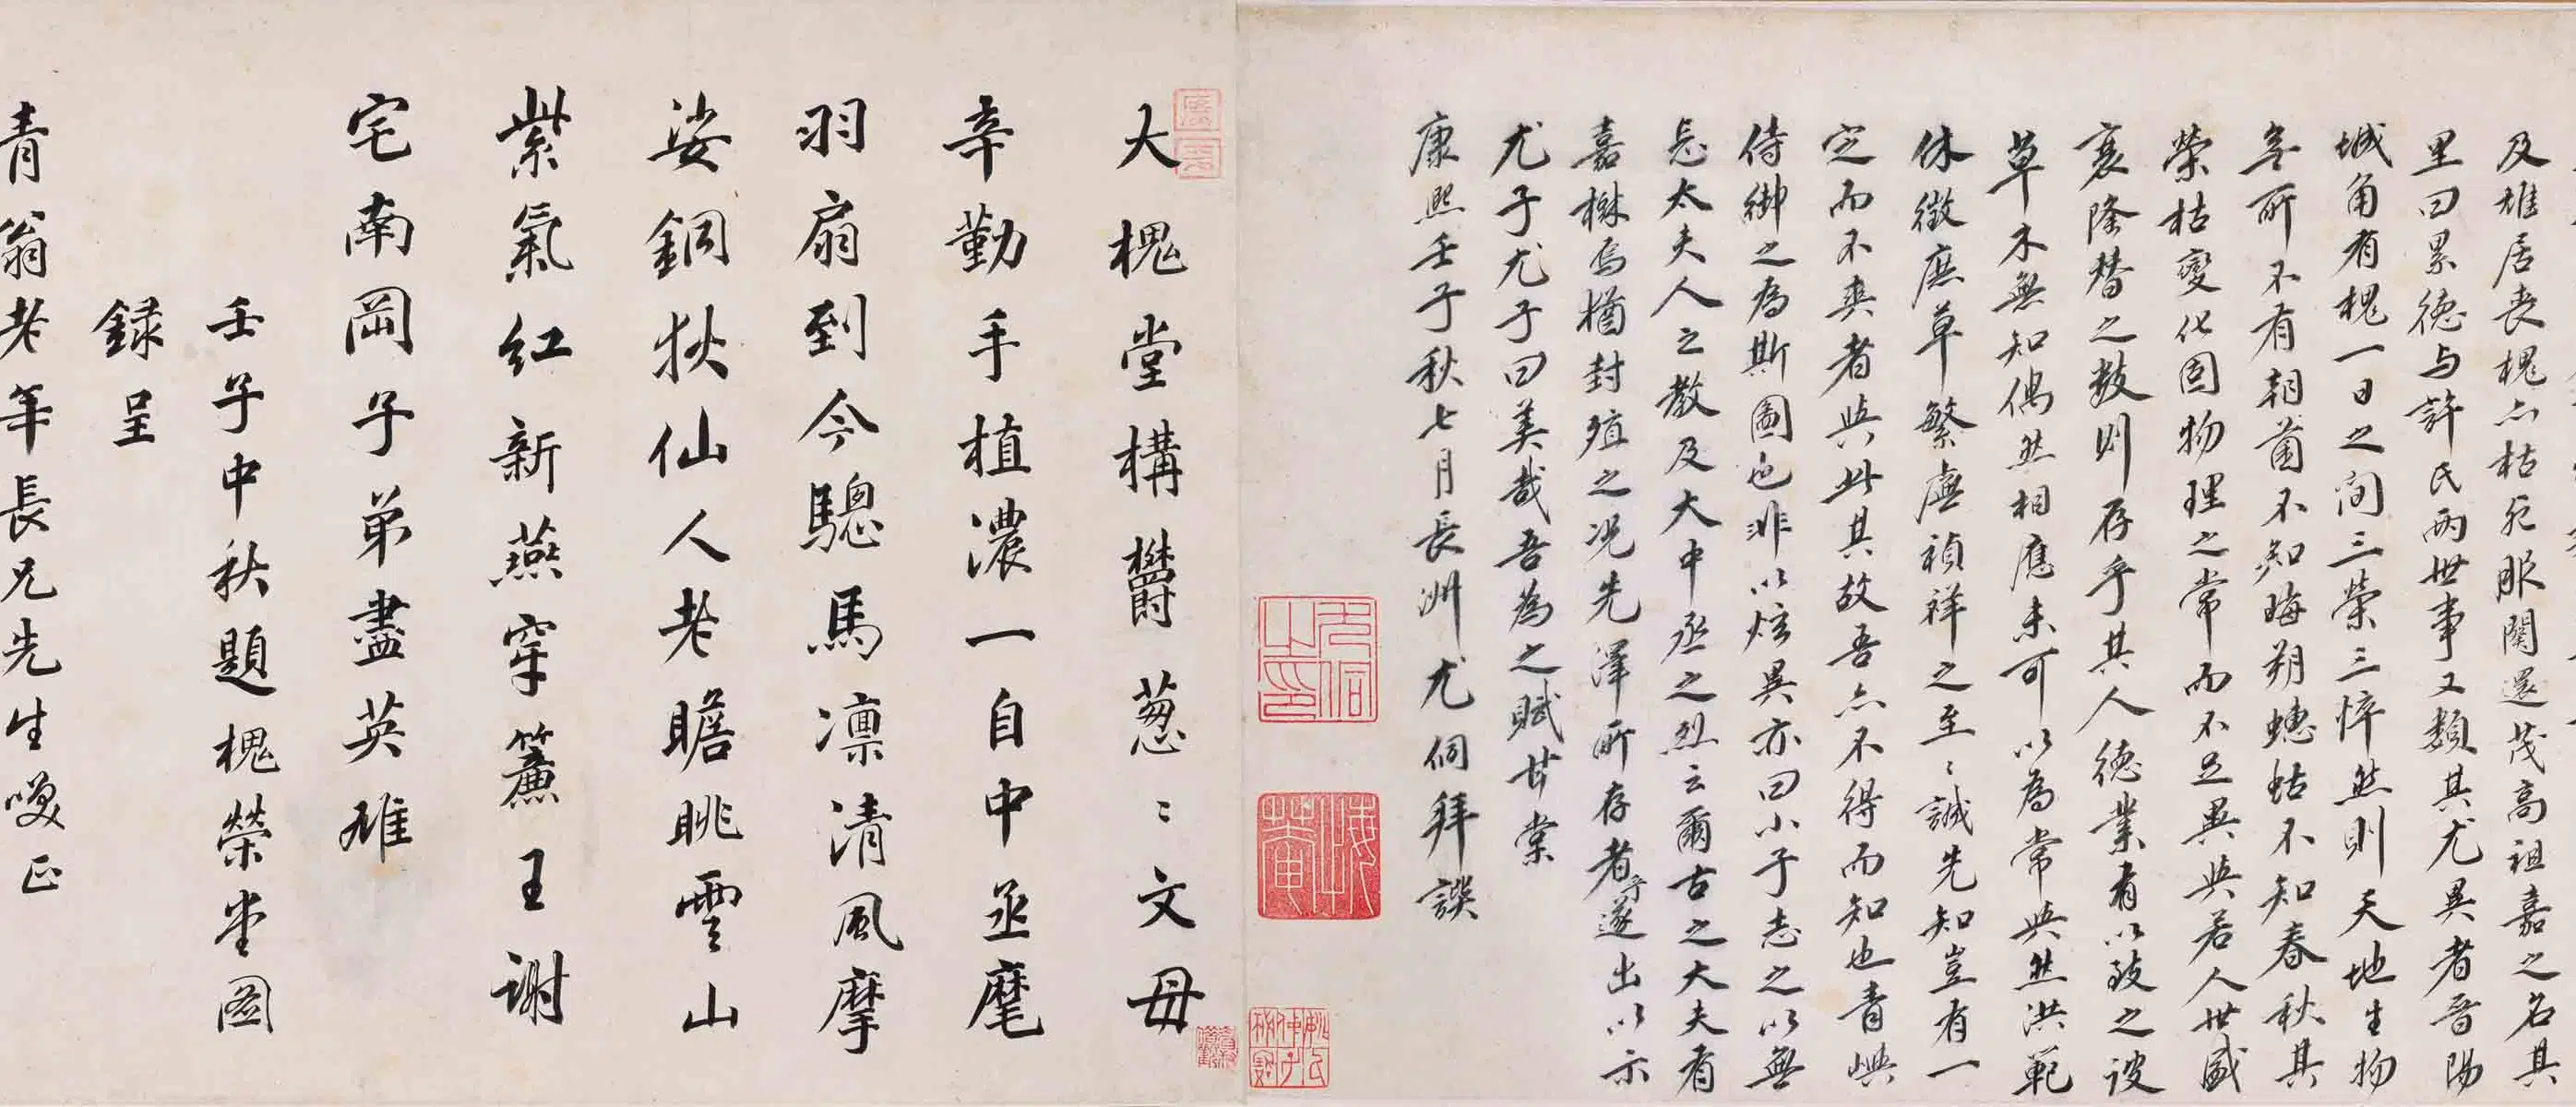 及雄居喪槐亦枯死服闋還茂高祖嘉之名其
里曰累德与許氏兩世事又類其尤異者晉陽
城角有槐一日之间三榮三悴然則天地生物
無所不有朝菌不知晦朔蟪蛄不知春秋其
榮枯变化固物理之常而不足異與若人世盛
衰隆替之数則存乎其人德業有以致之设
草木無知偶然相應未可以為常與然洪範
休徵庶草繁廡禎祥之至〻誠先知豈有一
定而不爽者與此其故吾亦不得而知也青嶼
侍御之為斯圖也非以炫異亦曰小子志之以無
忘太夫人之教及大中丞之烈云爾古之大夫有
嘉樹焉猶封殖之况先澤所存者乎遂出以示
尤子尤子曰美哉吾為之賦甘棠
康熙壬子秋七月長洲尤侗拜譔
尤侗之印
悔菴
大槐堂構欝葱〻文毋
辛勤手植濃一自中丞麾
羽扇到今驄馬凛清風摩
娑銅狄仙人老瞻眺雲山
紫氣紅新燕穿簾王謝
宅南岡子弟盡英雄
壬子中秋題槐榮堂図
録呈
青翁老年長兄先生喚正